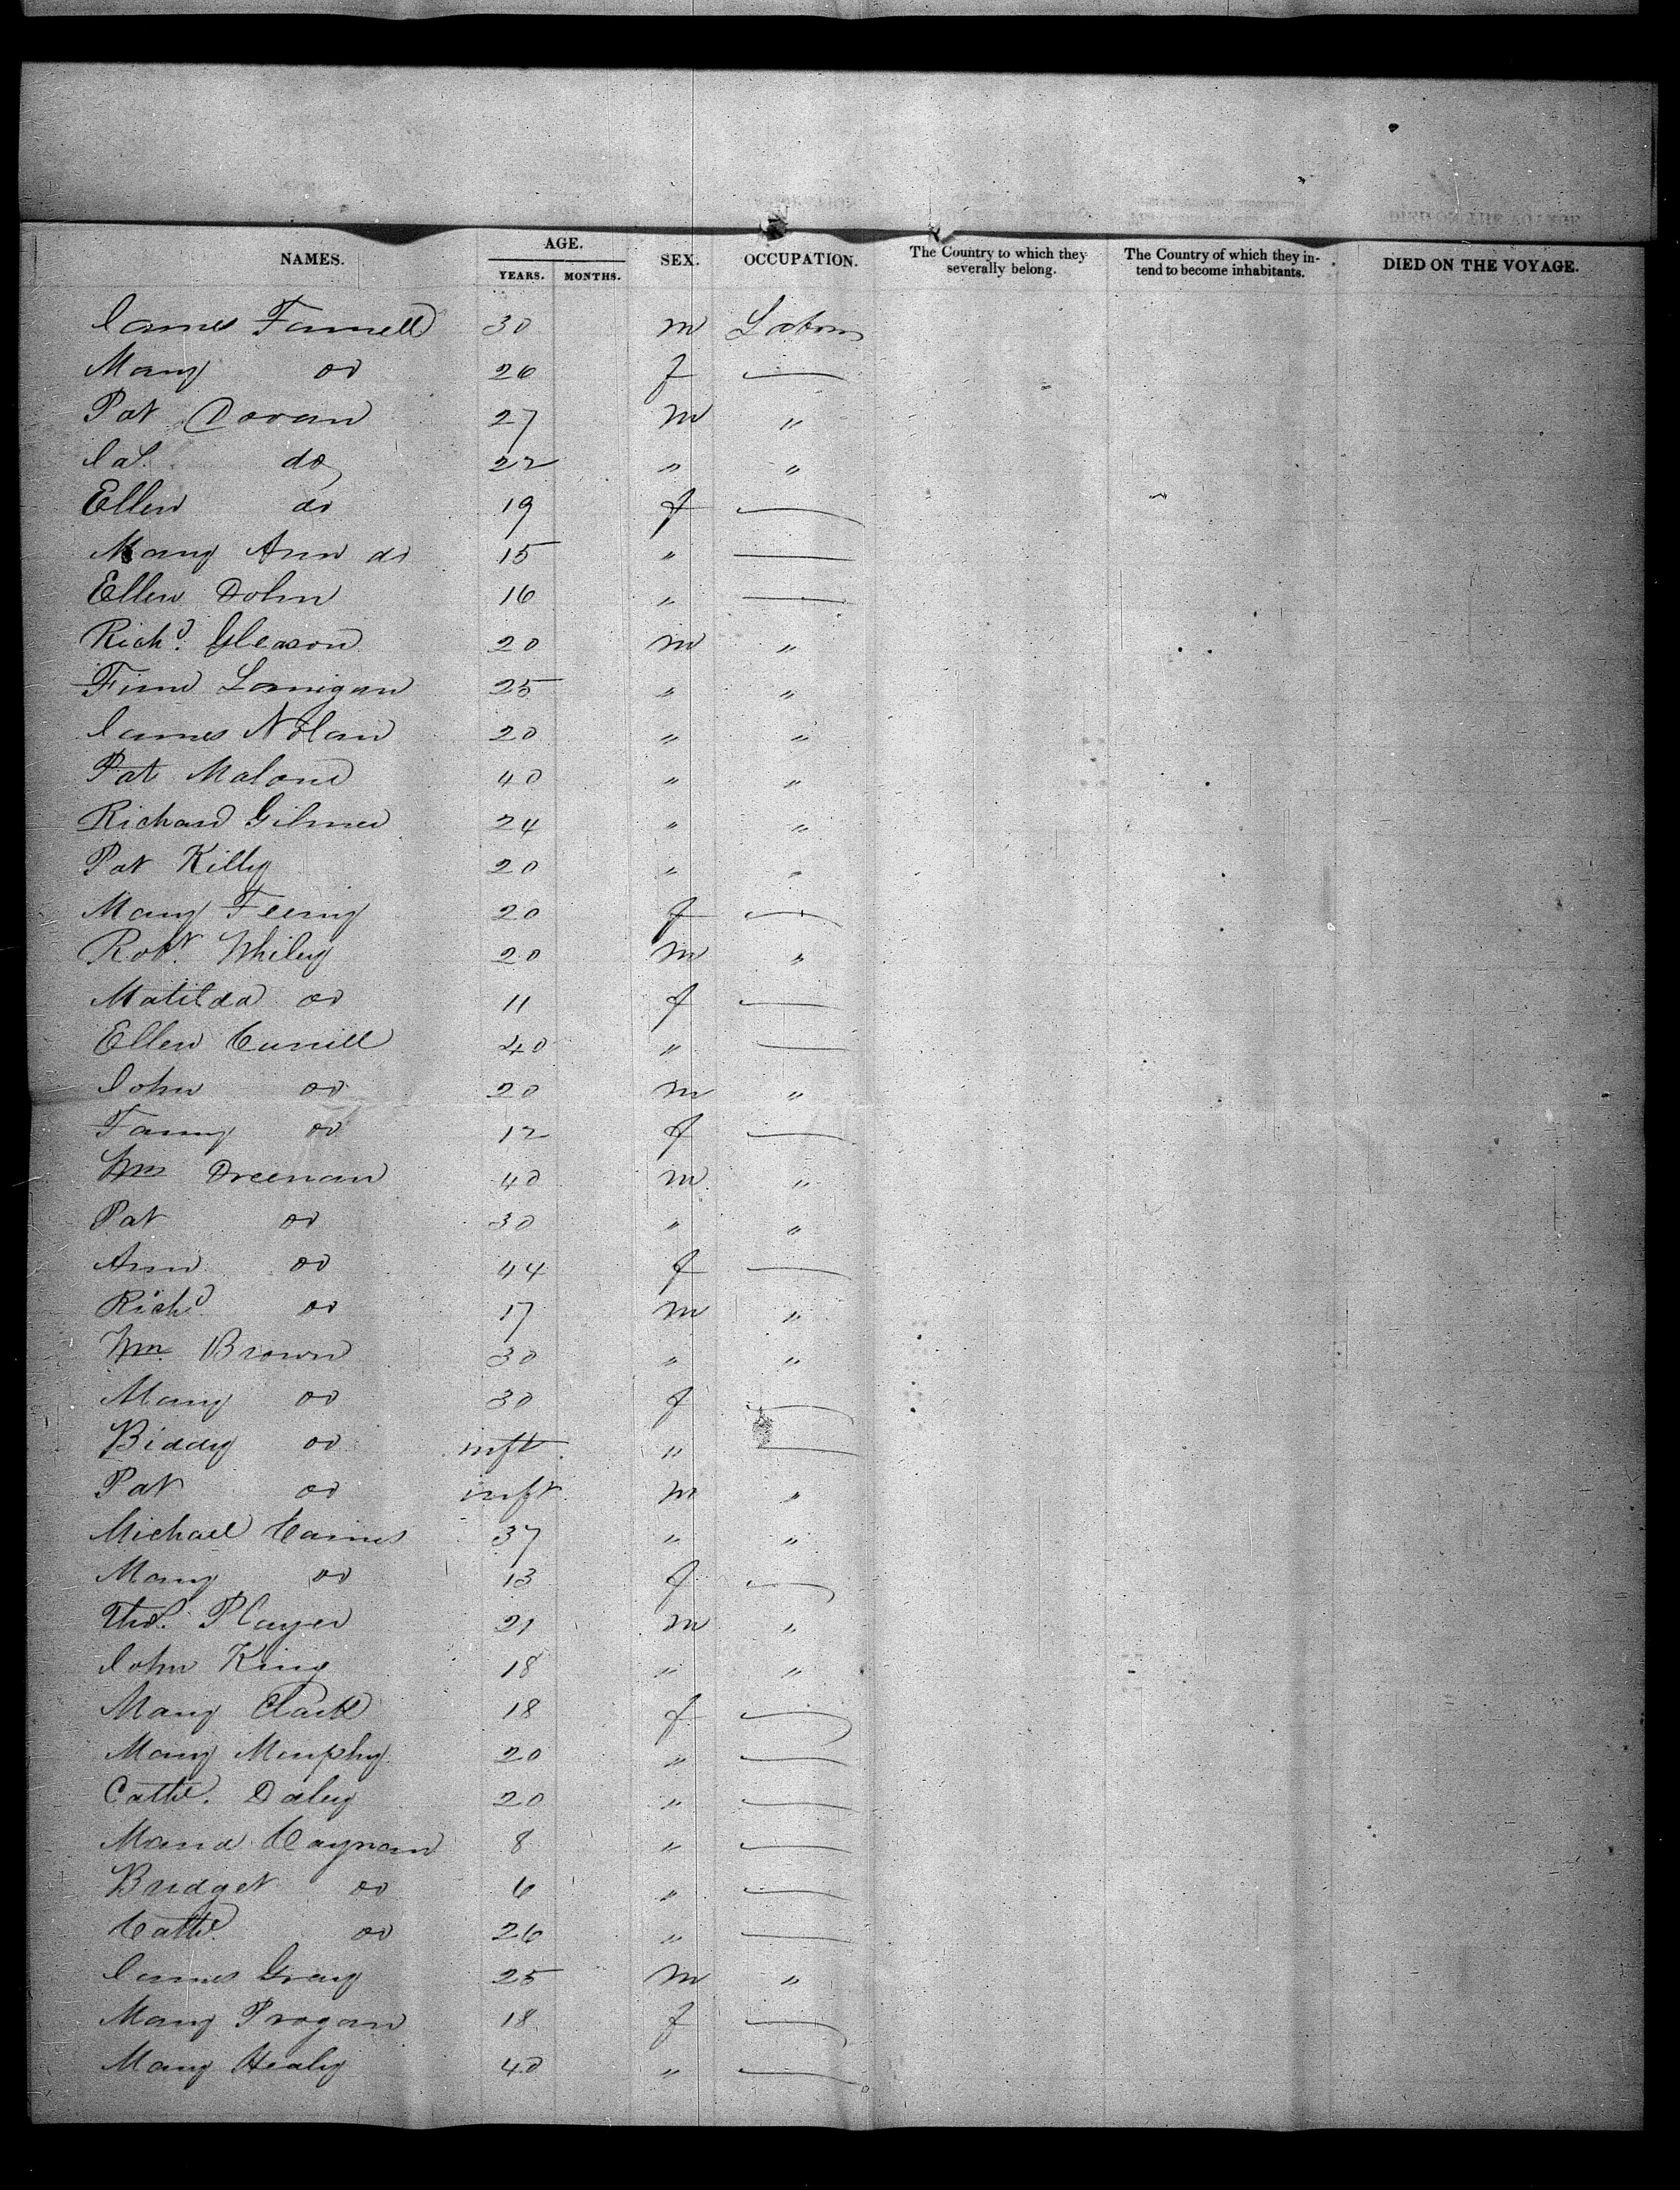 NAMES. AGE. YEARS. MONTHS. SEX. OCCUPATION. The Country to which they severally belong. The Country of which they intend to become inhabitants. DIED ON THE VOYAGE.
James Farrell 30 m Labors
Mary do 26 f —
Pat Doran 27 m "
Jas. do 22 " "
Ellen do 19 f —
Mary Ann do 15 " —
Ellen Dohn 16 " —
Richd. Gleason 20 m "
Finn Lanigan 25 " "
James Nolan 20 " "
Pat Malone 40 " "
Richard Gilmer 24 " "
Pat Killy 20 " "
Mary Feeny 20 f —
Robt. Whiley 20 m "
Matilda do 11 f —
Ellen 40 " —
John do 20 m "
Fanny do 12 f —
Wm Dreenan 40 m "
Pat do 30 " "
Ann do 44 f —
Richd do 17 m "
Wm. Brown 30 " "
Mary do 30 f —
Biddy do inft. " —
Pat do inft. m "
Michael Carnes 37 " "
Mary do 13 f —
Thos. Player 21 m "
John King 18 " "
Mary Clark 18 f —
Mary Murphy 20 " —
Cathe. Daley 20 " —
Maria 8 " —
Bridget do 6 " —
Cathe. do 26 " —
James Gray 25 m "
Mary Progan 18 f —
Mary Healy 40 " —